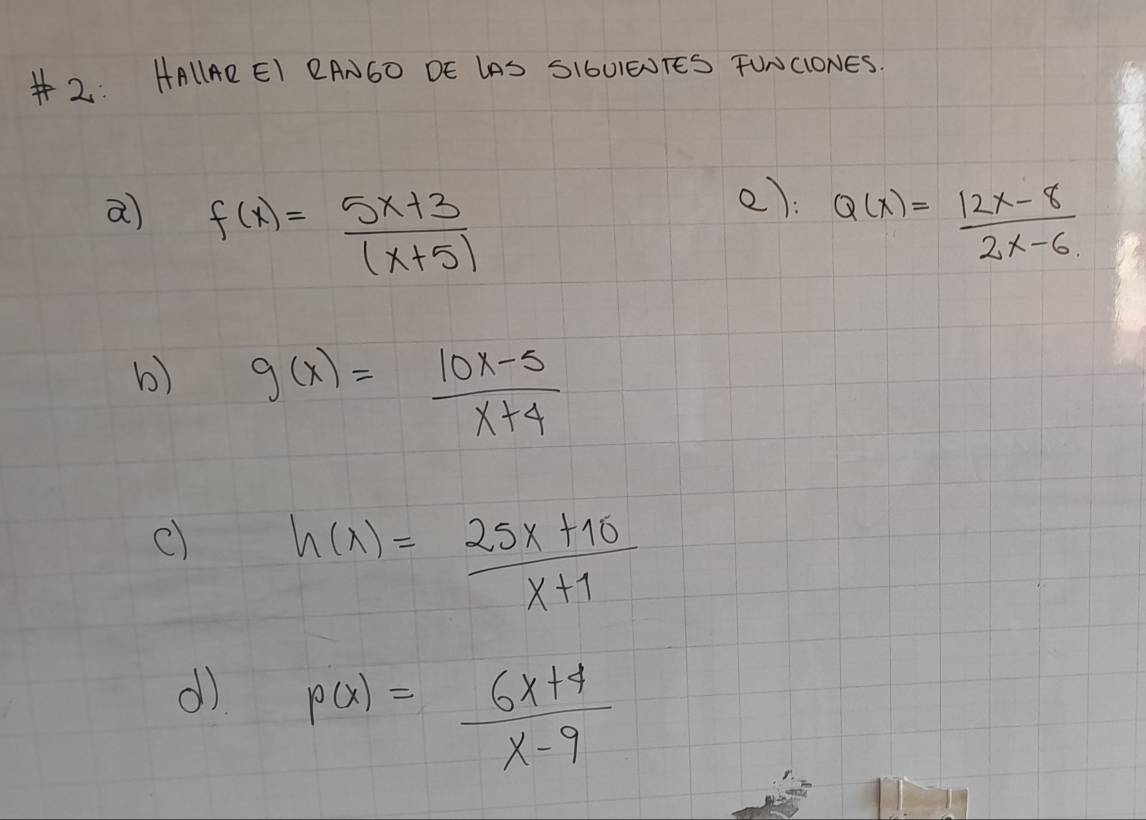 #2: HALLAR El RANGO DE lAS SIGUIENTES FUNCIONES.
a) f(x) = 5x+3 / (x+5)
e): Q(x) = 12x-8 / 2x-6.
b) g(x) = 10x-5 / x+4
c) h(x) = 25x+10 / x+1
d). p(x) = 6x+4 / x-9